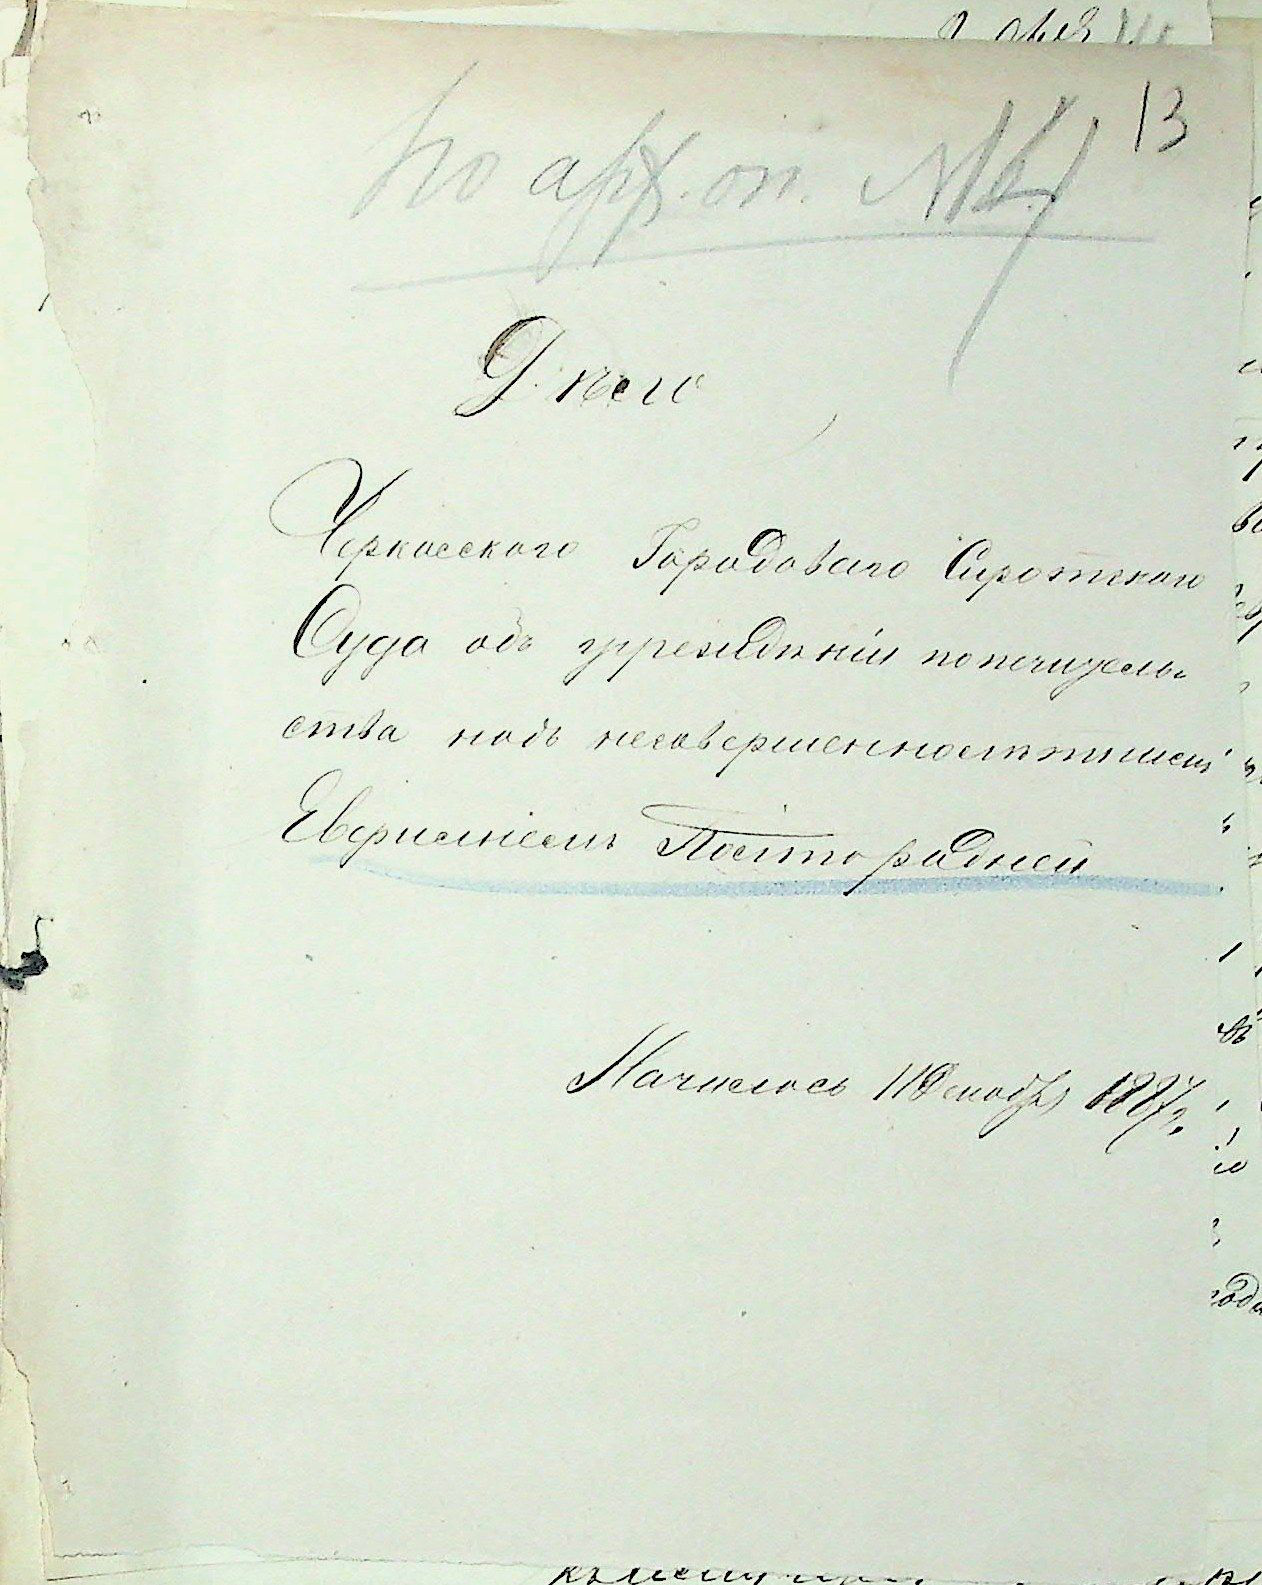 13
по арх. оп. №
Дѣло
Черкасскаго Городоваго Сиротскаго
Суда объ учрежденіи попечитель-
ства надъ несовершеннолѣтнимъ
Полторадней
Началось 11 Декабря 1887 г.